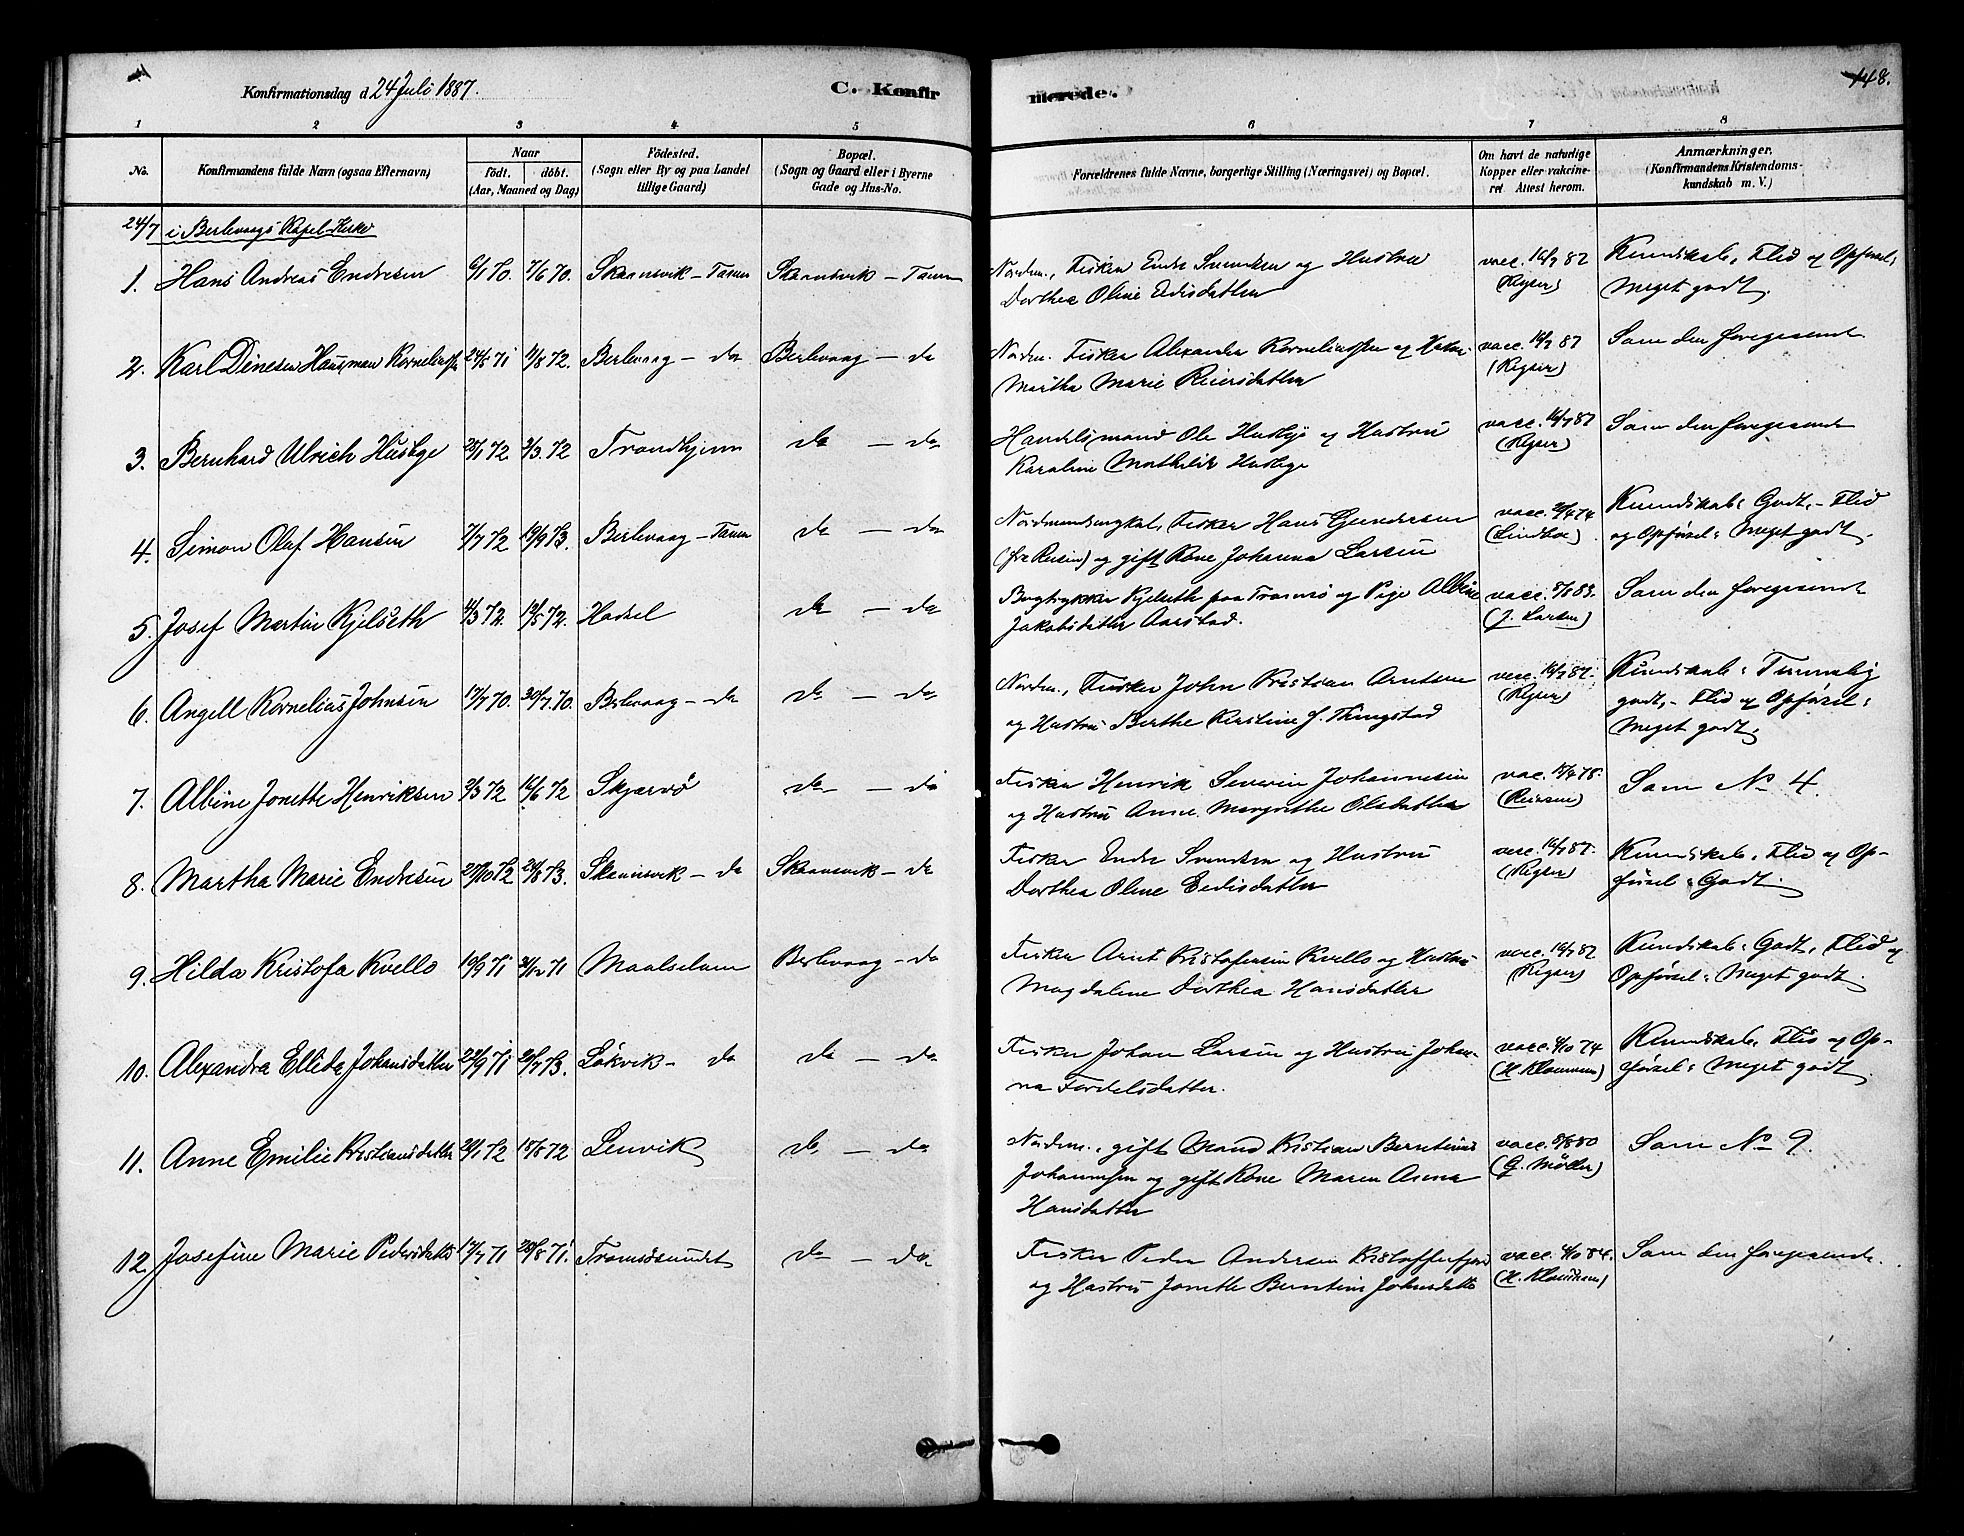 Konfirmationsdag d. 24 Juli 1887.
C. Konfirmerede.
148.
1 2 3 4 5 6 7 8
No.
Konfirmandens fulde Navn (ogsaa Efternavn)
Naar
födt. döbt.
(Aar, Maaned og Dag)
Födested.
(Sogn eller By og paa Landet
tillige Gaard)
Bopæl.
(Sogn og Gaard eller i Byerne
Gade og Hus-No.
Forældrenes fulde Navne, borgerlige Stilling (Næringsvei) og Bopæl.
Om havt de naturlige
Kopper eller vakcine-
ret. Attest herom.
Anmærkninger.
(Konfirmandens Kristendoms-
kundskab m. V.)
24/7 i Berlevaags Kapel-Kirke
1. Hans Andreas Endresen 6/1 70. 7/6 70. Skaansvik - Tanen Skaansvik - Tanen Nordm., Fisker Endre Svendsen og Hustru vacc. 16/7 87 Kundskab, Flid og Opførsel:
Dorthea Oline Eedisdatter (Keyser) Meget godt.
2. Karl Dinesen Hausman Korneliussen 24/5 71 11/8 72. Berlevaag - do Berlevaag - do Nordm. Fisker Alexander Korneliussen og Hustru vacc. 16/7 87 Som den foregaaende
Martha Marie Reiersdatter (Keyser)
3. Bernhard Ulrich Husbye 28/1 72 3/3 72 Trondhjem do - do Handelsmand Ole Husbye og Hustru vacc. 16/7 87 Som den foregaaende
Karoline Mathilde Husbye (Keyser)
4. Simon Oluf Hansen 7/7 72 19/9 73. Berlevaag - Tanen do - do Fisker Hans Gundersen Kundskab: Godt, - Flid
(fra Reisen) og gift Kone Johanna Larsen (Lindboe) og Opførsel: Meget godt.
5. Josef Martin Kjelseth 4/3 72 12/5 72. Hadsel do - do Bogtrykker Kjelseth paa Tromsø og Pige Albine vacc. 8/8 83. Som den foregaaende
Jakobsdatter Aarstad. (J. Larsen)
6. Angell Kornelius Johnsen 17/7 70. 30/7 70. Berlevaag - do do - do Nordm., Fisker John Kristian Arntsen vacc. 16/7 87. Kundskab: Temmelig
og Hustru Berthe Kirstine f. Thingstad (Keyser) godt, - Flid og Opførsel:
Meget godt.
7. Albine Jonette Henriksen 9/3 72 16/6 72 Skjærvö do - do Fisker Henrik Severin Johannesen Som No 4.
og Hustru Anne Margrethe Olsdatter (Reiersen)
8. Martha Marie Endresen 27/10 72 24/8 73. Skaansvik - do Skaansvik - do Fisker Endre Svendsen og Hustru vacc. 16/7 87. Kundskab, Flid og Op-
Dorthea Oline Eedisdatter (Keyser) førsel: Godt.
9. Hilda Kristofa Kvello 10/9 71 Maalselven Berlevaag - do Fisker Kristofersen Kvello og Hustru vacc. 16/7 87 Kundskab: Godt, Flid og
Magdalene Dorthea Hansdatter (Keyser) Opførsel: Meget godt.
10. Alexandra Ellida Johansdatter 22/9 71 Løkvik - do do - do Fisker Johan Larsen og Hustru Johan- vacc. 4/10 74 Kundskab, Flid og Op-
na Fordelsdatter. førsel: Meget godt.
11. Anne Emilie Kristiansdatter 20/1 72 18/8 72 Lenvik do - do Nordm., gift Mand Kristian Berntinus vacc. 9/8 80 Som No 9.
Johannessen og gift Kone Maren Anna (G. Møller)
Hansdatter
12. Josefine Marie Pedersdatter 17/7 71 20/8 71. Tromsøsundet do - do Fisker Peder Andersen vacc. 4/10 84. Som den foregaaende.
og Hustru Jonette Berntine Johnsdatter